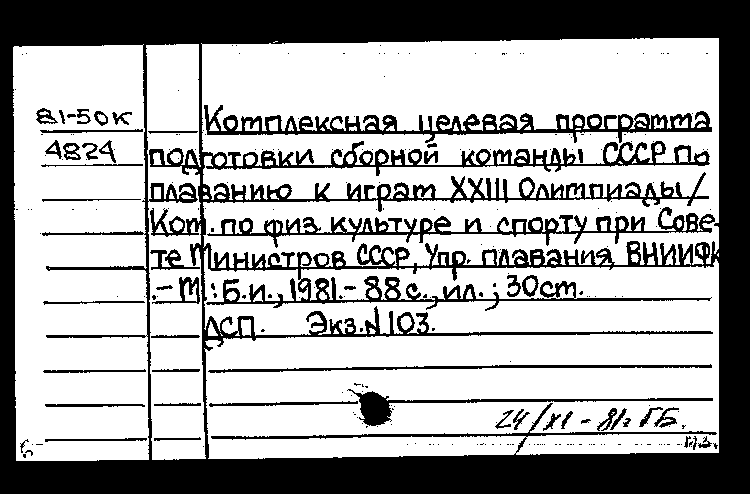 81-50К
4824
Комплексная целевая программа
подготовки сборной команды СССР по
плаванию к играм XXIII Олимпиады/
Ком. по физ. культуре и спорту при Сове-
те Министров СССР, Упр. плавания, ВНИИФК
.- М.: Б.и., 1981.- 88 с., ил.; 30 см.
ДСП. Экз.N 103.
24/XI - 81г ГБ.